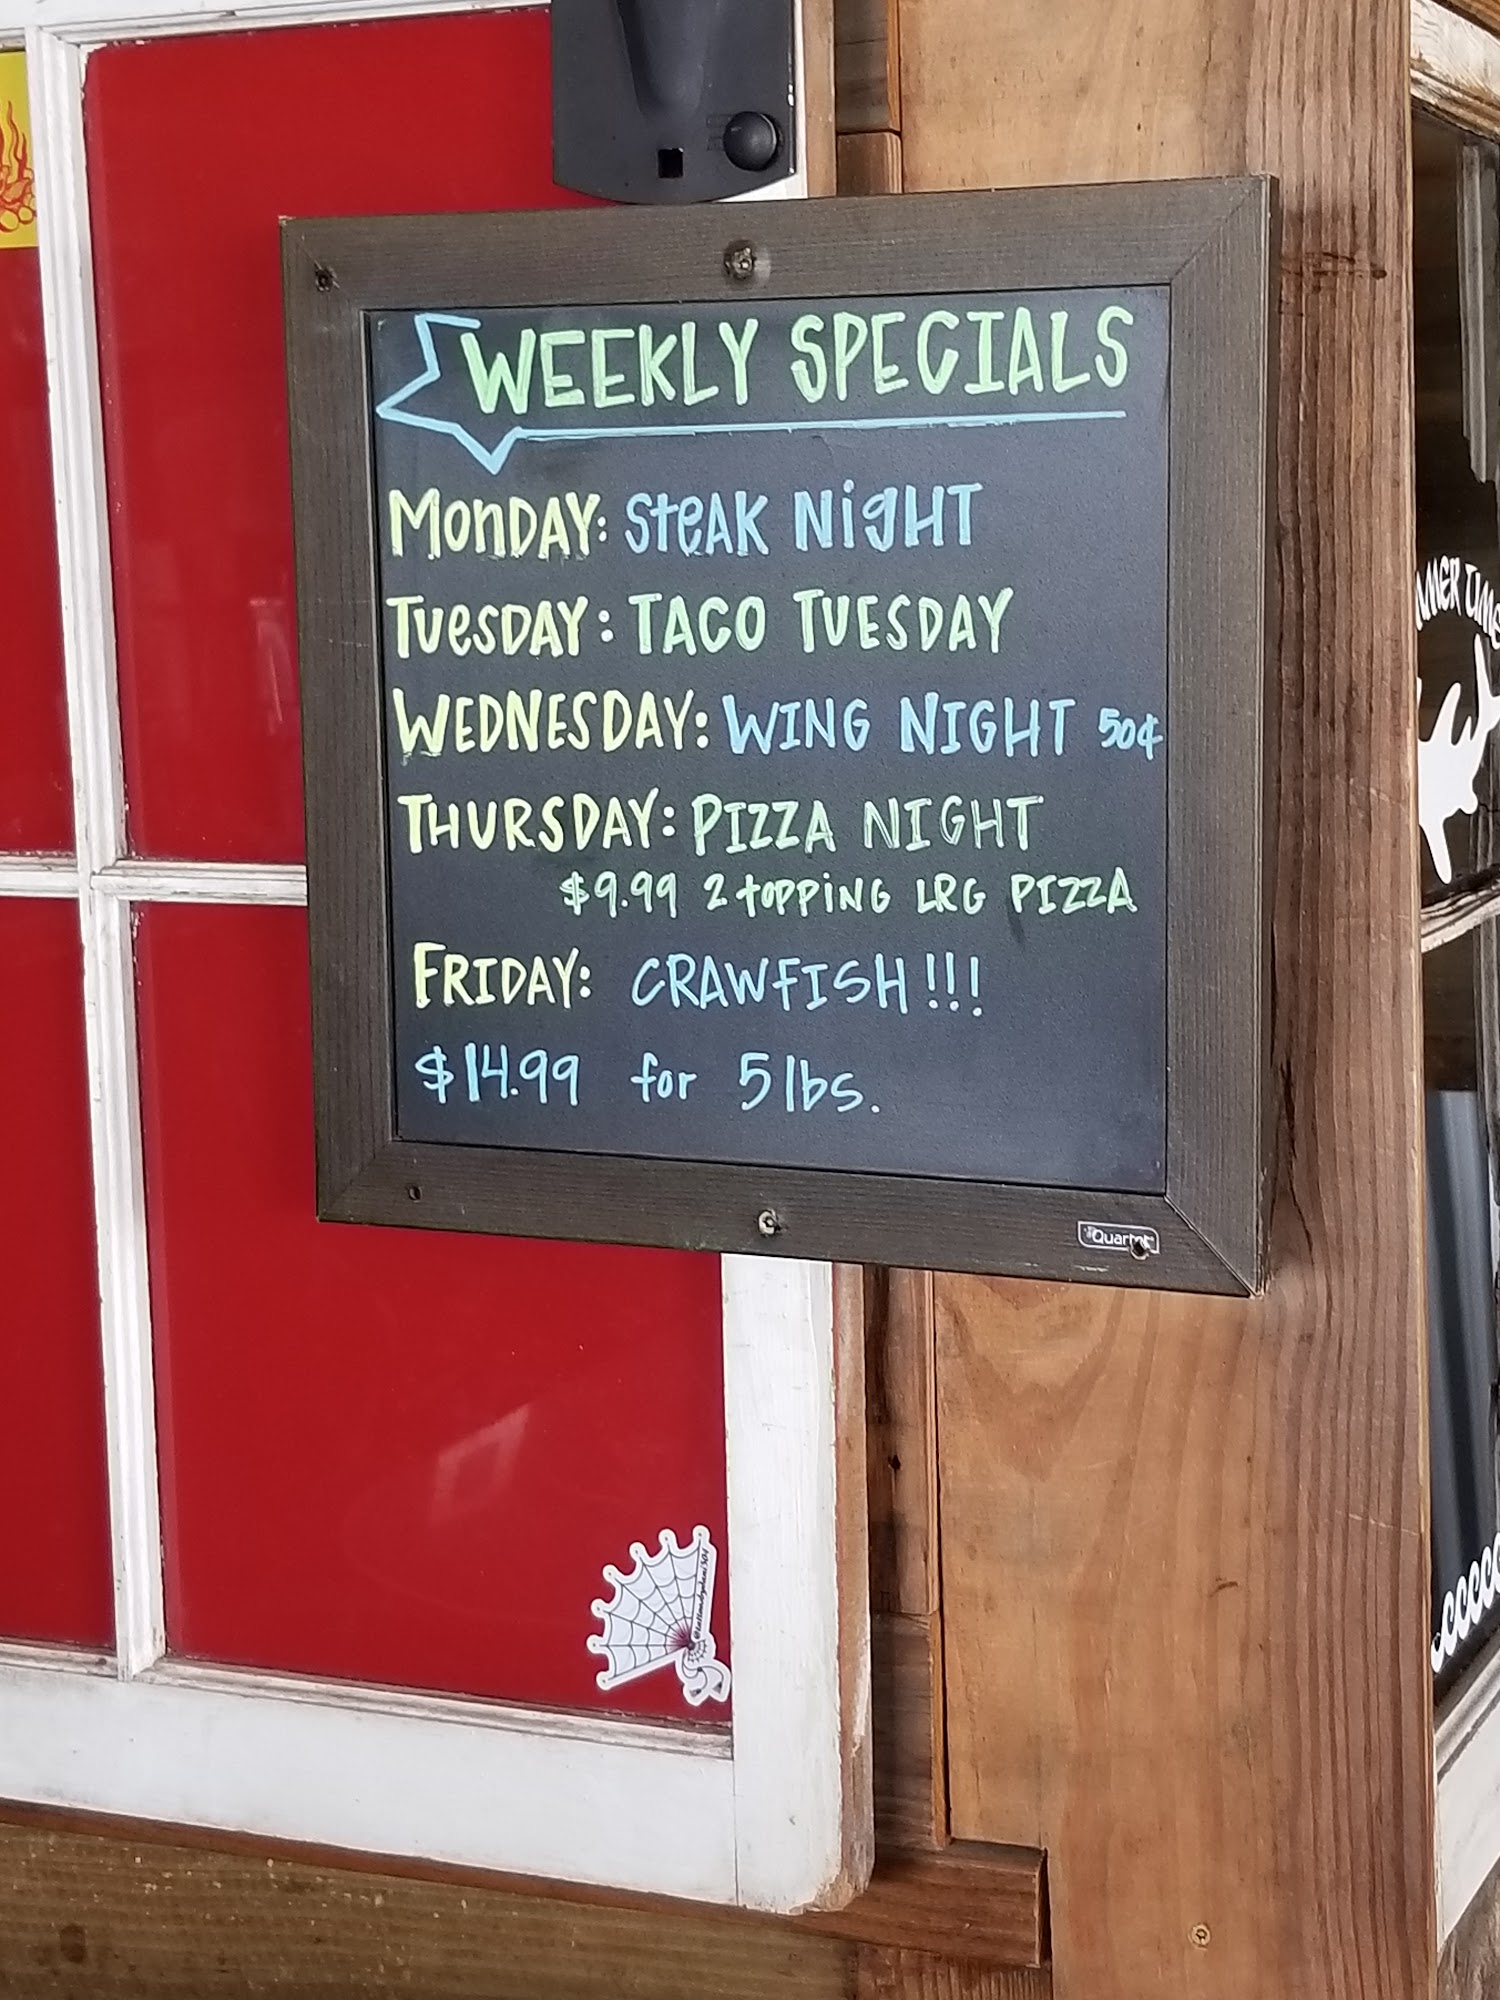 WEEKLY SPECIALS
MONDAY: STEAK NiGHT
TUESDAY: TACO TUESDAY
WEDNESDAY: WING NIGHT 50¢
THURSDAY: PIZZA NIGHT
$9.99 2 tOPPiNG LRG PIZZA
FRIDAY: CRAWFISH!!!
$14.99 for 5 lbs.
Quartet